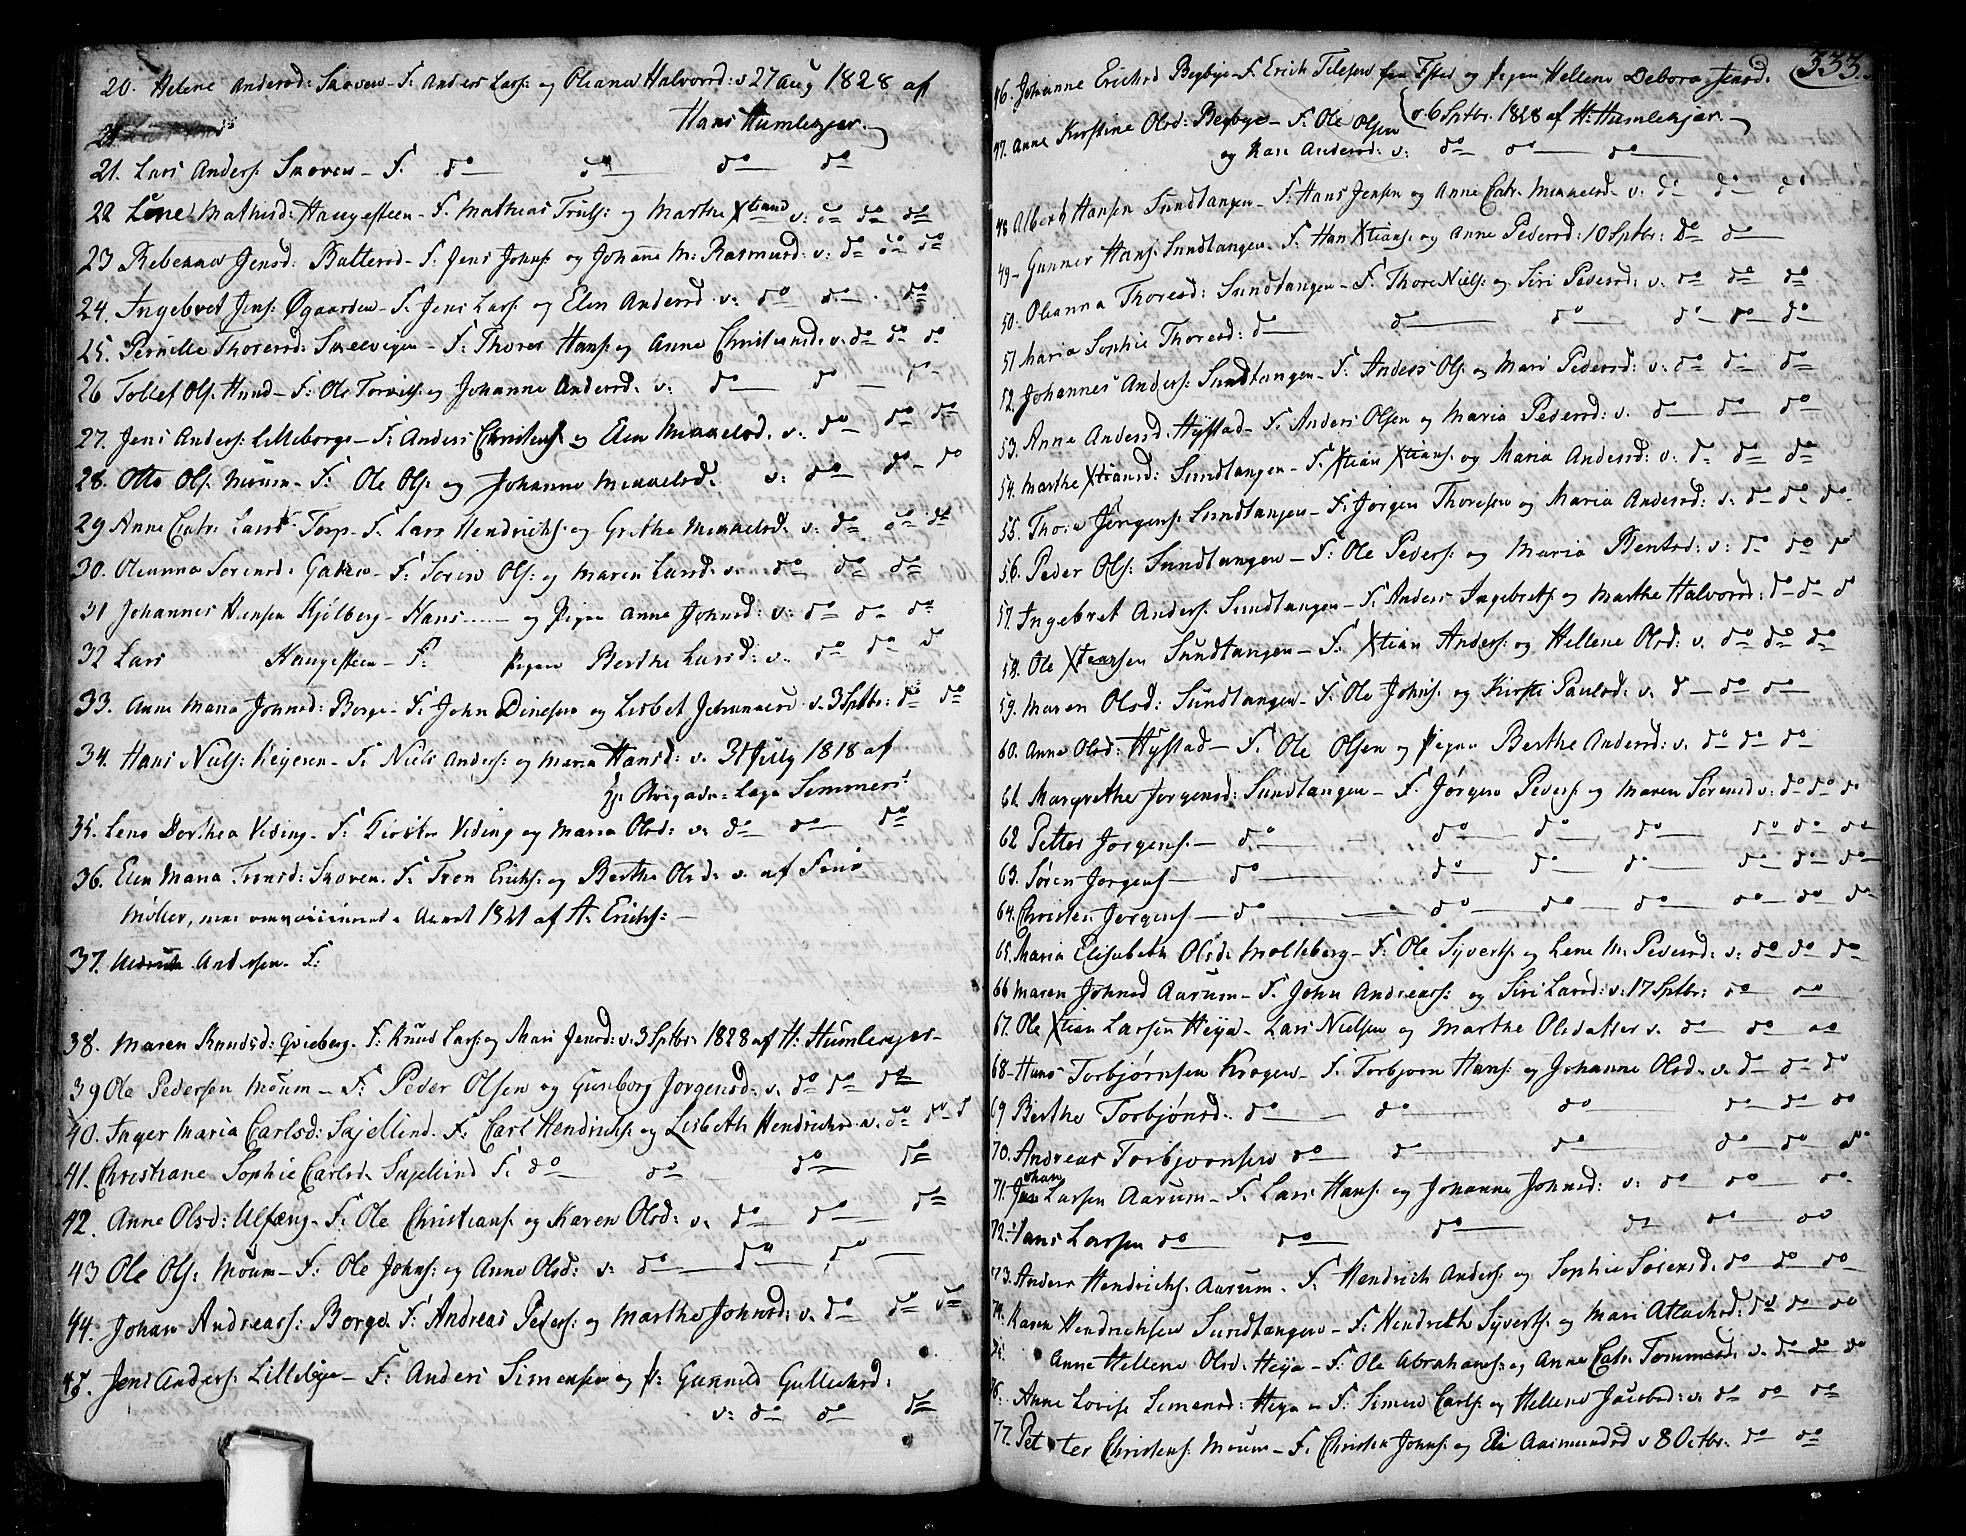 20. Helene Andersd: Skoven - F. Anders Lars: og Oleana Halvorsd: v. 27 Aug 1828 af
Hans Humlekjær.
21. Lars Anders: Skoven - F. do do do do
22 Lene Mathisd: Haugesteen - F. Mathias Truls: og Marthe Xtiansd v: do do do
23 Rebekka Jensd: Ratterød - F. Jens Johns: og Johanne M: Rasmusd: v: do do do
24. Ingebret Jens: Øgaarden - F. Jens Lars: og Elen Andersd v: do do do
25. Pernille Thoresd: Skeelvigen - F: Thores Hans: og Anne Christiansd: v: do do do
26 Tollef Ols: Hund - F: Ole Torkils: og Johanne Andersd. v: do do do
27. Jens Anders: Lilleborge - F: Anders Christens: og Elen Mikkelsd. v: do do do
28. Otto Ols: Moum - F: Ole Ols: og Johanne Mikkelsd. v: do do do
29 Anne Catr: Larsd Torp - F. Lars Hendrichs: og Grethe Mikkelsd: v: do do do
30. Oleanna Sørensd: Gaken - F: Søren Ols: og Maren Larsd: v: do do do
31 Johannes Hansen Kjølberg - Hans og Pigen Anne Johnsd: v: do do do
32 Lars Haugesteen - F: Pigen Berthe Larsd: v: do do do
33. Anne Maria Johnsd: Borge - F: John Dinesen og Lisbet Johannesd v. 3 Sptbr: do do
34. Hans Niels: - F. Niels Anders: og Maria Hansd: v. 31 July 1818 af
Hr. Brigade: Læge Sommer:
35. Lena Dorthea Viding - F: Viding og Maria Olsd: v: do do do
36. Elen Maria Tronsd: Skoven. F. Tron Erichs: og Berthe Olsd: v. af
Møller, men Aaret 1821 af A. Erichs: -
37. Andersen - F:
38. Maren Knudsd: Qvieberg - F. Knud Lars: og Mari Jensd: v. 3 Sptbr: 1828 af H: Humlekjær -
39 Ole Pedersen Moum - F: Peder Olsen og Gunborg Jørgensd: v. do do do
40. Inger Maria Carlsd: Skjellind. F. Carl Hendrichs: og Lisbeth Hendrichsd v. do do do
41. Christiane Sophie Carlsd. Skjellind F: do do do do
42. Anne Olsd: Ulfæng - F: Ole Christians: og Karen Olsd: v. do do do
43 Ole Ols: Moum - F: Ole Johns: og Anne Olsd: v: do do do
44. Johan Andreass: Borge. F: Andreas Peders: og Marthe Johnsd: v. do do do
45. Jens Anders: Lilleløye - F: Anders Simensen og P: Gunnild Gulliksd:
v: do do do
333.
46. Johanne Erichsd Begbye - F. Erich Tilesen fra Ysted og Pigen Hellene Debora Jensd.
v. 6 Sptbr. 1828 af H: Humlekjær.
47. Anne Kirstine Olsd: Begbye - F: Ole Olsen
og Kari Andersd: v: do do do
48 Albert Hansen Sundtangen - F: Hans Jensen og Anne Catr. Mikkelsd. v: do do do
49 - Gunner Hans: Sundtangen. F. Hans Xtians: og Anne Pedersd: 10 Sptbr: do do
50. Oleanna Thoresd: Sundtangen - F. Thore Niels: og Siri Pedersd: v. do do do
51 Maria Sophie Thoresd: do do do do do do
52. Johannes Anders: Sundtangen - F. Anders Ols: og Mari Pedersd: v. do do do
53. Anne Andersd. Hystad - F. Anders Olsen og Maria Pedersd: v. do do do
54. Marthe Xtiansd: Sundtangen - F. Xtian Xtians: og Maria Andersd: v. do do do
55. Thore Jørgens: Sundtangen - F: Jørgen Thoresen og Maria Andersd: v: do do do
56. Peder Ols: Sundtangen - F: Ole Peders: og Maria Bentsd: v: do do do
57. Ingebret Anders: Sundtangen - F. Anders Ingebrets: og Marthe Halvorsd: do do do
58. Ole Xtiansen Sundtangen - F. Xtian Anders: og Hellene Olsd: v. do do do
59. Maren Olsd: Sundtangen - F. Ole Johns: og Kirsti Paulsd: v. do do do
60. Anne Olsd: Hystad - F. Ole Olsen og Pigen Berthe Andersd: v. do do do
61. Margrethe Jørgensd: Sundtangen - F. Jørgen Peders: og Maren Sørensd v: do do do
62 Petter Jørgens - do do do do do do do
63. Søren Jørgens - do do do do do do do
64. Christen Jørgens - do do do do do do do
65. Maria Elisabeth Olsd: Molleberg - F. Ole Syverts: og Lene M: Pedersd: v: do do do
66 Maren Johnsd Aarum - F. John Andreass: og Siri Larsd: v: 17 Sptbr: do do
67. Ole Xtian Larsen Heja - Lars Nielsen og Marthe Olsdatter v. do do do
68 - Hans Torbjørnsen Krogen - F. Torbjørn Hans: og Johanne Olsd. v. do do do
69 Berthe Torbjønsd. do do do do do do
70. Andreas Torbjørnsen do do do do do do
71. Johan Larsen Aarum - F. Lars Hans: og Johanne Johnsd: v: do do do
72. Hans Larsen do do do do do do
73. Anders Hendrichs: Aarum. F. Hendrich Anders: og Sophie Sørensd. do do do
74. Karen Hendrichsen Sundtangen - F: Hendrich Syverts: og Mari Atlachsd: do do do
75. Anne Hellene Olsd. Heja - F: Ole Abrahams: og Anne Catr. Tommesd. v. do do do
76. Anne Lovise Simensd: Heja - F: Simen Carls: og Hellene Jacobsd: v. do do do
77. Petter Christens: Moum - F. Christen Johns: og Eli Aasmundsd v 8 Octbr. do do